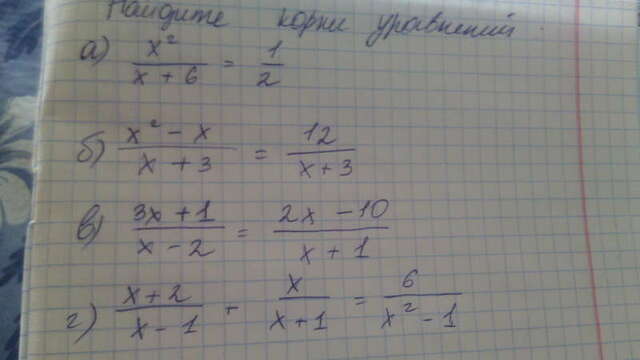 Найдите корни уравнений.
а) x²/(x + 6) = 1/2
б) (x² - x)/(x + 3) = 12/(x + 3)
в) (3x + 1)/(x - 2) = (2x - 10)/(x + 1)
г) (x + 2)/(x - 1) + x/(x + 1) = 6/(x² - 1)